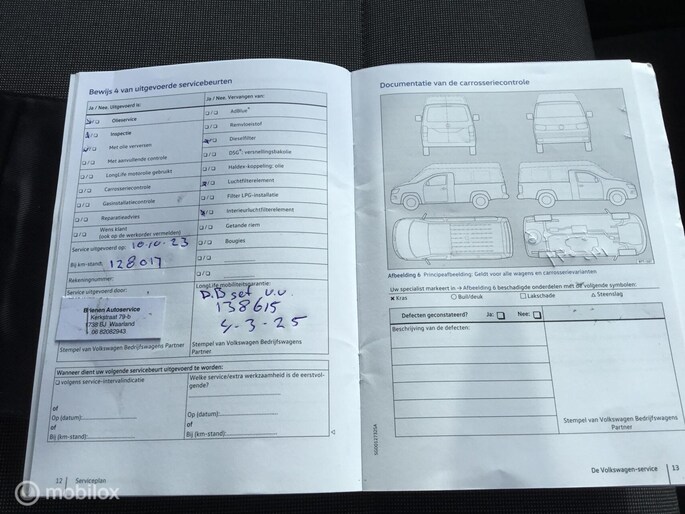 Bewijs 4 van uitgevoerde servicebeurten
Ja / Nee. Uitgevoerd is:
Olieservice
Inspectie
Met olie verversen
Met aanvullende controle
LongLife motorolie gebruikt
Carrosseriecontrole
Gasinstallatiecontrole
Reparatieadvies
Wens klant
(ook op de werkorder vermelden)
Ja / Nee. Vervangen van:
AdBlue®
Remvloeistof
Dieselfilter
DSG®: versnellingsbakolie
Haldex-koppeling: olie
Luchtfilterelement
Filter LPG-installatie
Interieurluchtfilterelement
Getande riem
Bougies
Service uitgevoerd op: 10.10.23
Bij km-stand: 128017
Rekeningnummer:
Service uitgevoerd door:
Brienen Autoservice
Kerkstraat 79-b
1738 BJ Waarland
06 82082943
Stempel van Volkswagen Bedrijfswagens
Partner
LongLife mobiliteitsgarantie:
D.D set v.v
138615
4-3-25
Stempel van Volkswagen Bedrijfswagens
Partner
Wanneer dient uw volgende servicebeurt uitgevoerd te worden:
volgens service-intervalindicatie
of
Op (datum):
of
Bij (km-stand):
Welke service/extra werkzaamheid is de eerstvol-
gende?
of
Op (datum):
of
Bij (km-stand):
12 Serviceplan
Documentatie van de carrosseriecontrole
Afbeelding 6 Principeafbeelding: Geldt voor alle wagens en carrosserievarianten.
Uw specialist markeert in → Afbeelding 6 beschadigde onderdelen met de volgende symbolen:
× Kras ○ Buil/deuk □ Lakschade △ Steenslag
Defecten geconstateerd? Ja: Nee:
Beschrijving van de defecten:
Stempel van Volkswagen Bedrijfswagens
Partner
De Volkswagen-service 13
mobilox